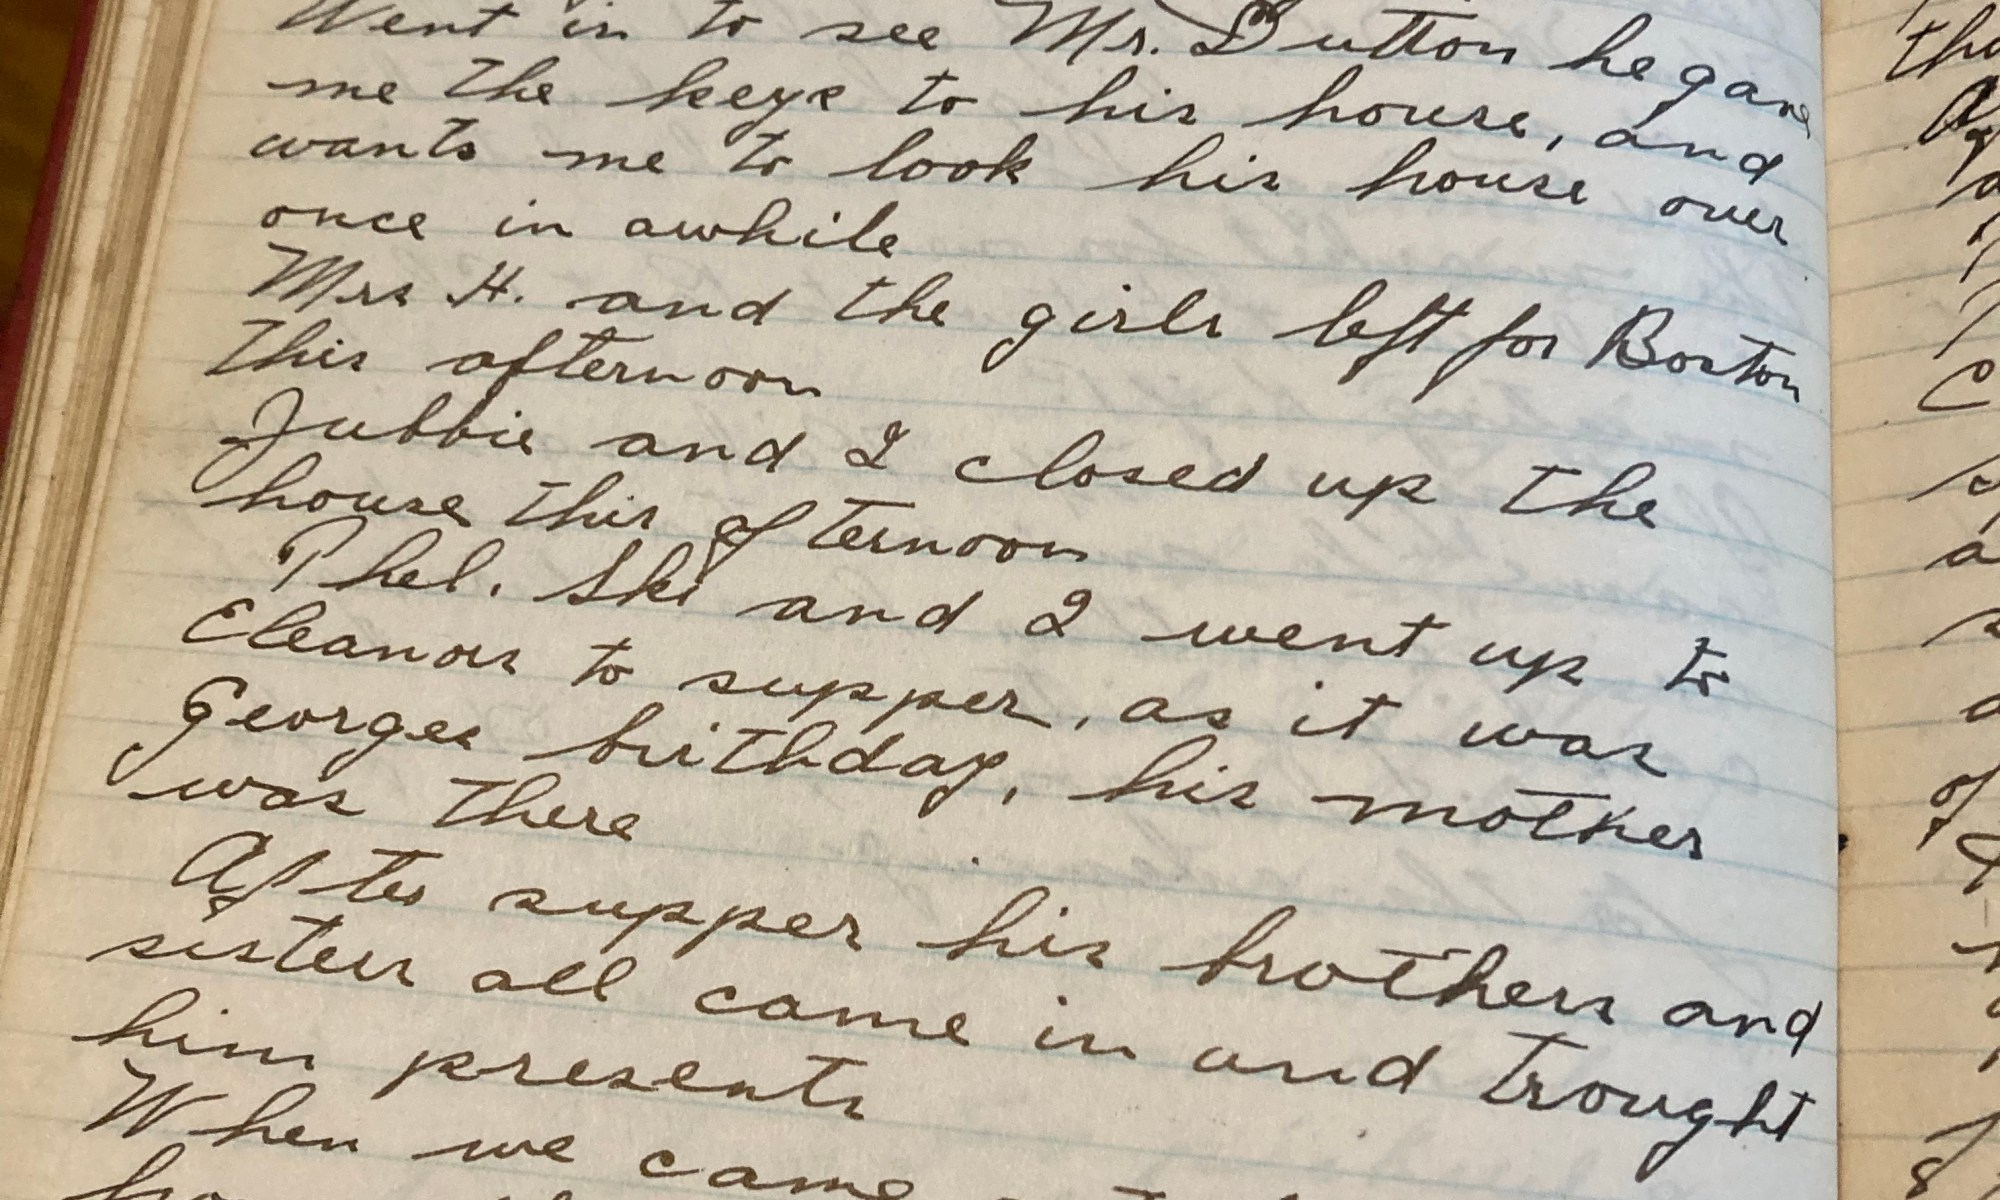 Went in to see Mr. Dutton he gave
me the keys to his house, and
wants me to look his house over
once in awhile
Mrs H. and the girls left for Boston
this afternoon
Jubbie and I closed up the
house this afternoon
Phel. Ski and I went up to
Eleanors to supper, as it was
Georges birthday, his mother
was there
After supper his brothers and
sisters all came in and trought
him presents
When we came